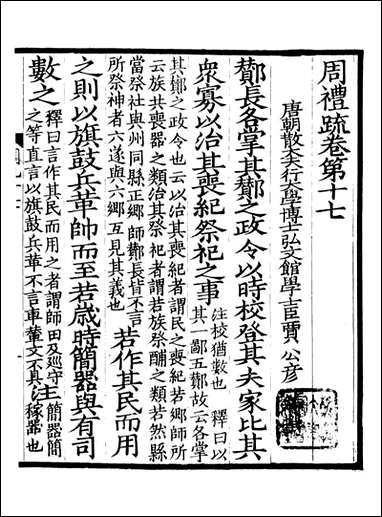 周禮疏卷第十七
唐朝散大夫行大學博士弘文館學士臣賈公彥
酇長各掌其酇之政令以時校登其夫家比其
眾寡以治其喪紀祭祀之事
注校猶數也 釋曰以
其一鄙五酇故云各掌
其酇之政令也云以治其喪紀者謂民之喪紀若鄉師所
云族共喪器之類治其祭祀者謂若族祭酺之類若然縣
當祭社與州同縣正鄉師酇長皆不言
所祭神者六遂與六鄉互見其義也
若作其民而用
之則以旗鼓兵革帥而至若歲時簡器與有司
數之
釋曰言作其民而用之者謂師田及巡守
之等直言以旗鼓兵革不言車輦文不具
注
簡器簡
稼器也